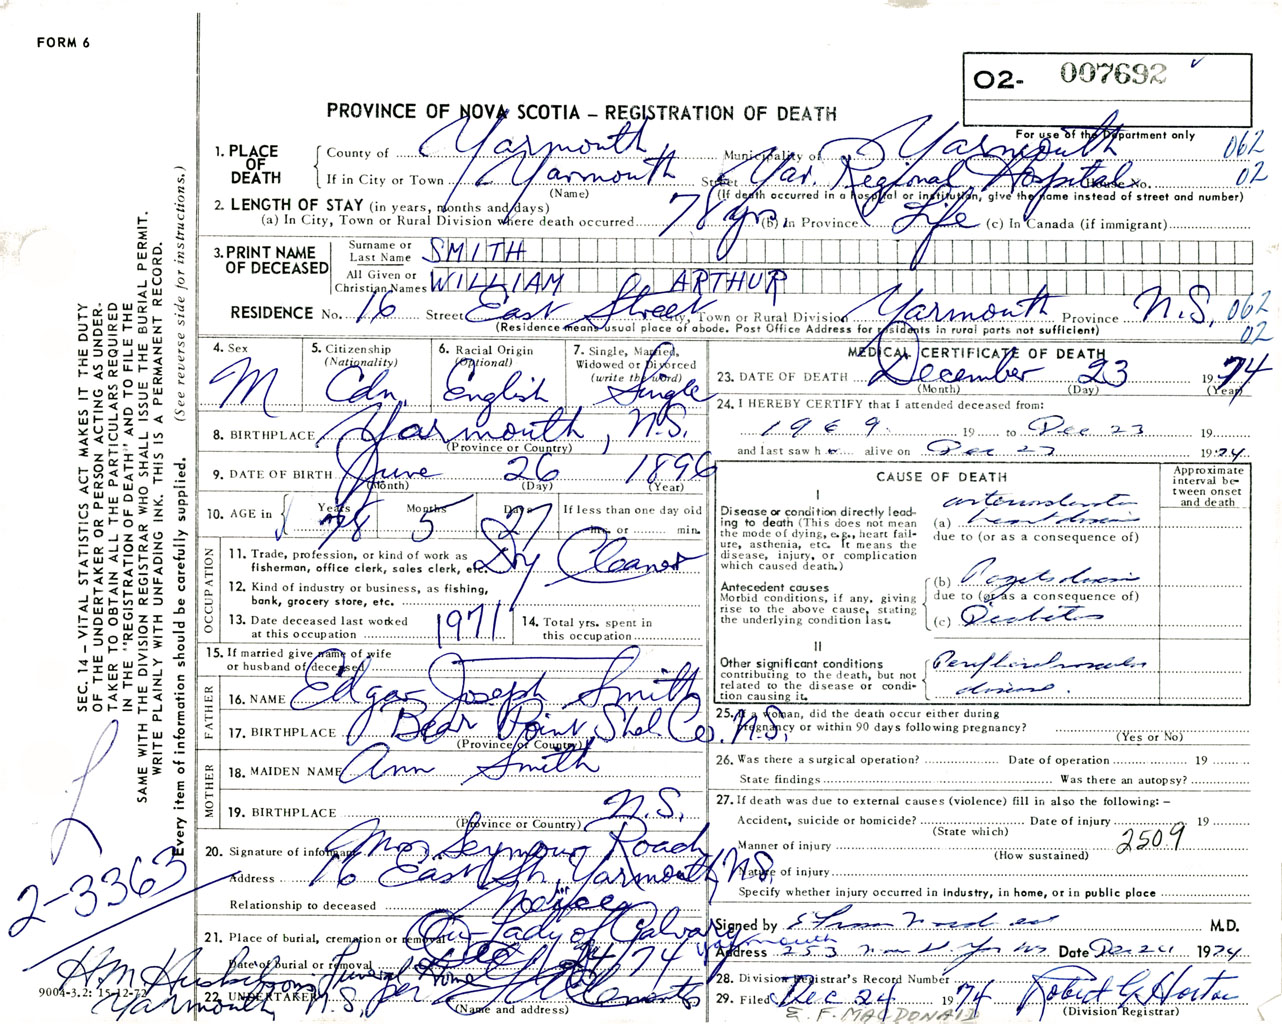 FORM 6
O2- 007692
For use of the Department only
PROVINCE OF NOVA SCOTIA – REGISTRATION OF DEATH
1. PLACE OF DEATH
County of Yarmouth Municipality of Yarmouth 062
If in City or Town Yarmouth Street Yar. Regional Hospital House No. 02
(Name) (If death occurred in a hospital or institution, give the name instead of street and number)
2. LENGTH OF STAY (in years, months and days)
(a) In City, Town or Rural Division where death occurred 78 yrs. (b) In Province Life (c) In Canada (if immigrant)
3. PRINT NAME OF DECEASED
Surname or Last Name SMITH
All Given or Christian Names WILLIAM ARTHUR
RESIDENCE No. 16 Street East Street City, Town or Rural Division Yarmouth Province N.S. 062
(Residence means usual place of abode. Post Office Address for residents in rural parts not sufficient) 02
4. Sex M
5. Citizenship (Nationality) Cdn.
6. Racial Origin (Optional) English
7. Single, Married, Widowed or Divorced (write the word) Single
8. BIRTHPLACE Yarmouth, N.S.
(Province or Country)
9. DATE OF BIRTH June 26 1896
(Month) (Day) (Year)
10. AGE in Years 78 Months 5 Days 27 If less than one day old hrs. or min.
OCCUPATION
11. Trade, profession, or kind of work as fisherman, office clerk, sales clerk, etc. Dry Cleaner
12. Kind of industry or business, as fishing, bank, grocery store, etc.
13. Date deceased last worked at this occupation 1971
14. Total yrs. spent in this occupation
15. If married give name of wife or husband of deceased
FATHER
16. NAME Edgar Joseph Smith
17. BIRTHPLACE Bear Point, Shel. Co. N.S.
(Province or Country)
MOTHER
18. MAIDEN NAME Ann Smith
19. BIRTHPLACE N.S.
(Province or Country)
20. Signature of informant Mrs Seymour Roach
Address 16 East St. Yarmouth, N.S.
Relationship to deceased
21. Place of burial, cremation or removal Our Lady of Calvary Yarmouth
Date of burial or removal Dec 24 74
22. UNDERTAKER H.M. Huskilson Funeral Home per Clements
Yarmouth N.S.
(Name and address)
9004-3.2: 15-12-72
MEDICAL CERTIFICATE OF DEATH
23. DATE OF DEATH December 23 1974
(Month) (Day) (Year)
24. I HEREBY CERTIFY that I attended deceased from:
1969 19 to Dec 23 19
and last saw h alive on Dec 23 1974
CAUSE OF DEATH
Approximate interval between onset and death
I
Disease or condition directly leading to death (This does not mean the mode of dying, e.g., heart failure, asthenia, etc. It means the disease, injury, or complication which caused death.)
(a) arteriosclerotic heart disease
due to (or as a consequence of)
Antecedent causes
Morbid conditions, if any, giving rise to the above cause, stating the underlying condition last.
(b) Pagets disease
due to (or as a consequence of)
(c) Diabetes
II
Other significant conditions contributing to the death, but not related to the disease or condition causing it.
Peripheral vascular disease.
25. If a woman, did the death occur either during pregnancy or within 90 days following pregnancy?
(Yes or No)
26. Was there a surgical operation? Date of operation 19
State findings Was there an autopsy?
27. If death was due to external causes (violence) fill in also the following: –
Accident, suicide or homicide? Date of injury 19
(State which)
Manner of injury 2509
(How sustained)
Nature of injury
Specify whether injury occurred in industry, in home, or in public place
Signed by M.D.
Address 253 Main St. Yar NS Date Dec 24 1974
28. Division Registrar's Record Number
29. Filed Dec 24 1974 Robert G. Horton
(Division Registrar)
E. F. MACDONALD
SEC. 14 – VITAL STATISTICS ACT MAKES IT THE DUTY
OF THE UNDERTAKER OR PERSON ACTING AS UNDER-
TAKER TO OBTAIN ALL THE PARTICULARS REQUIRED
IN THE "REGISTRATION OF DEATH" AND TO FILE THE
SAME WITH THE DIVISION REGISTRAR WHO SHALL ISSUE THE BURIAL PERMIT.
WRITE PLAINLY WITH UNFADING INK. THIS IS A PERMANENT RECORD.
Every item of information should be carefully supplied. (See reverse side for instructions.)
2-3363